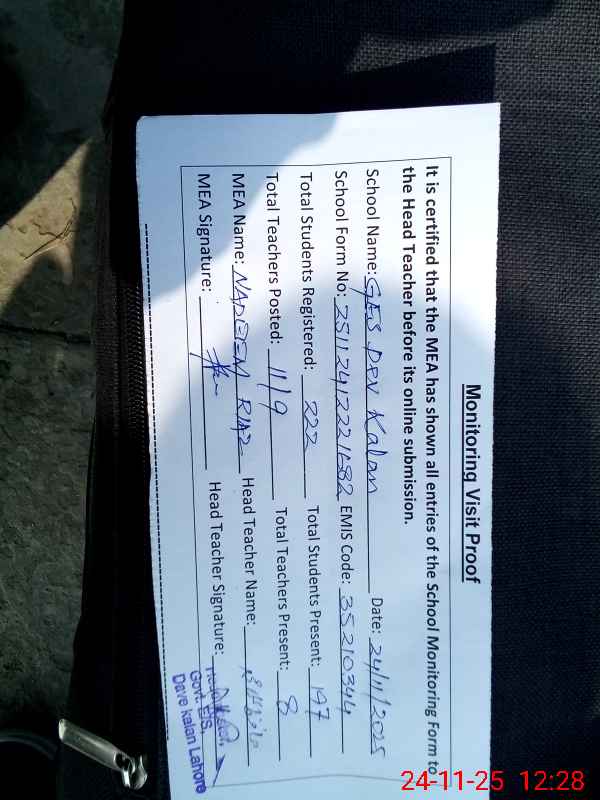 Monitoring Visit Proof
It is certified that the MEA has shown all entries of the School Monitoring Form to
the Head Teacher before its online submission.
School Name: GES Dev Kalan Date: 24/11/2025
School Form No: EMIS Code: 35210344
Total Students Registered: 222 Total Students Present: 197
Total Teachers Posted: 11/9 Total Teachers Present: 8
MEA Name: NADEEM RIAZ Head Teacher Name:
MEA Signature: Head Teacher Signature:
Govt. E/S,
Dave Kalan Lahore
24-11-25 12:28